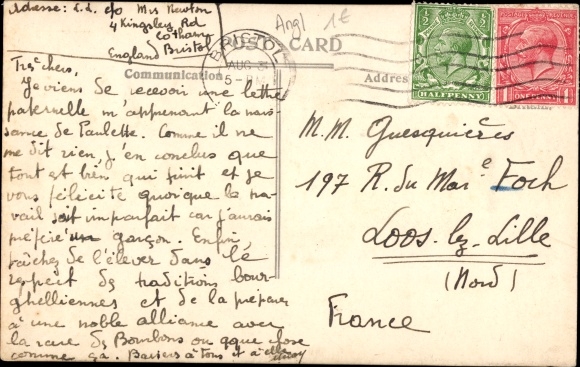 Adresse: L.L. c/o Mrs Newton
4 Kingsley Rd
Cotham
England Bristol
Angl 1€
POST CARD
BRISTOL
AUG 31
5- PM
Communication
Address
HALFPENNY
ONE PENNY
Très chers,
Je viens de recevoir une lettre
paternelle m'apprenant la nais-
sance de Paulette. Comme il ne
me dit rien, j'en conclus que
tout est bien qui finit et je
vous félicite quoique le tra-
vail soit imparfait car j'aurais
préféré un garçon. Enfin,
tâchez de l'élever dans le
respect des traditions bour-
ghelliennes et de la préparer
à une noble alliance avec
la race des Bourbons ou qque chose
comme ça. Baisers à tous et à elle
M.M. Guesquières
197 R. du Maral Foch
Loos-lez-Lille
(Nord)
France